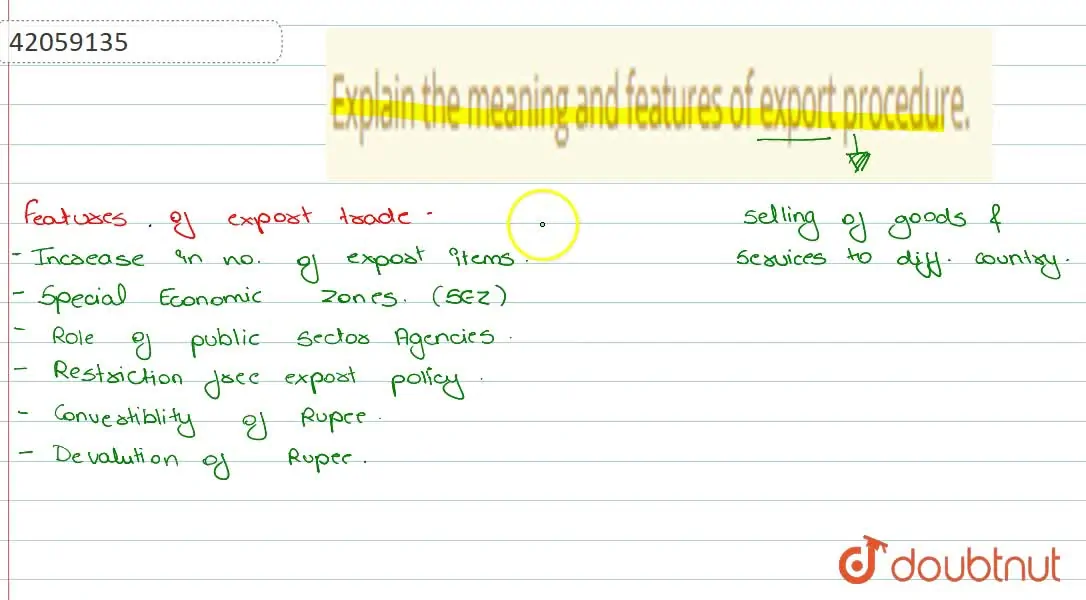 42059135
Explain the meaning and features of export procedure.
Features . of export trade -
selling of goods &
services to diff. country.
- Increase in no. of export items.
- Special Economic Zones. (SEZ)
- Role of public sector Agencies.
- Restriction free export policy.
- Convertiblity of Rupee.
- Devalution of Rupee.
doubtnut